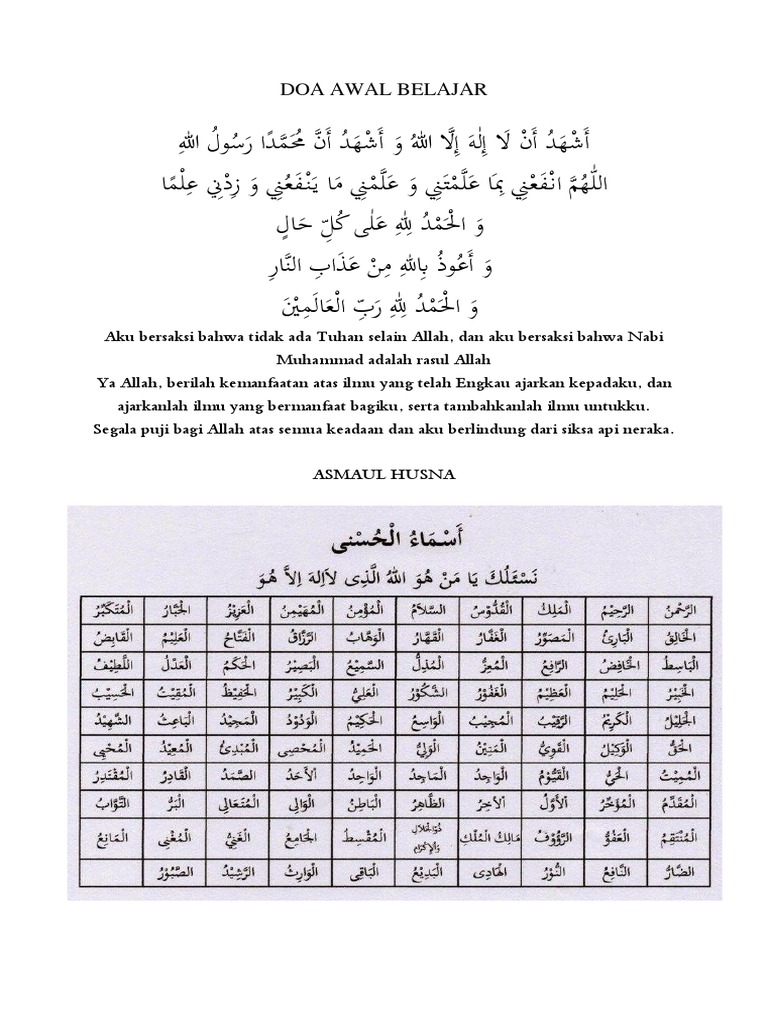 DOA AWAL BELAJAR
أَشْهَدُ أَنْ لَا إِلٰهَ إِلَّا اللهُ وَ أَشْهَدُ أَنَّ مُحَمَّدًا رَسُولُ اللهِ
اللّٰهُمَّ انْفَعْنِي بِمَا عَلَّمْتَنِي وَ عَلِّمْنِي مَا يَنْفَعُنِي وَ زِدْنِي عِلْمًا
وَ الْحَمْدُ لِلهِ عَلٰى كُلِّ حَالٍ
وَ أَعُوذُ بِاللهِ مِنْ عَذَابِ النَّارِ
وَ الْحَمْدُ لِلهِ رَبِّ الْعَالَمِيْنَ
Aku bersaksi bahwa tidak ada Tuhan selain Allah, dan aku bersaksi bahwa Nabi
Muhammad adalah rasul Allah
Ya Allah, berilah kemanfaatan atas ilmu yang telah Engkau ajarkan kepadaku, dan
ajarkanlah ilmu yang bermanfaat bagiku, serta tambahkanlah ilmu untukku.
Segala puji bagi Allah atas semua keadaan dan aku berlindung dari siksa api neraka.
ASMAUL HUSNA
أَسْمَاءُ الْحُسْنٰى
نَسْئَلُكَ يَا مَنْ هُوَ اللهُ الَّذِى لَاَاِلهَ اِلاَّ هُوَ
الرَّحْمٰنُ الرَّحِيْمُ الْمَلِكُ الْقُدُّوْسُ السَّلَامُ الْمُؤْمِنُ الْمُهَيْمِنُ الْعَزِيْزُ الْجَبَّارُ الْمُتَكَبِّرُ
الْخَالِقُ الْبَارِئُ الْمُصَوِّرُ الْغَفَّارُ الْقَهَّارُ الْوَهَّابُ الرَّزَّاقُ الْفَتَّاحُ الْعَلِيْمُ الْقَابِضُ
الْبَاسِطُ الْخَافِضُ الرَّافِعُ الْمُعِزُّ الْمُذِلُّ السَّمِيْعُ الْبَصِيْرُ الْحَكَمُ الْعَدْلُ اللَّطِيْفُ
الْخَبِيْرُ الْحَلِيْمُ الْعَظِيْمُ الْغَفُوْرُ الشَّكُوْرُ الْعَلِيُّ الْكَبِيْرُ الْحَفِيْظُ الْمُقِيْتُ الْحَسِيْبُ
الْجَلِيْلُ الْكَرِيْمُ الرَّقِيْبُ الْمُجِيْبُ الْوَاسِعُ الْحَكِيْمُ الْوَدُوْدُ الْمَجِيْدُ الْبَاعِثُ الشَّهِيْدُ
الْحَقُّ الْوَكِيْلُ الْقَوِيُّ الْمَتِيْنُ الْوَلِيُّ الْحَمِيْدُ الْمُحْصِى الْمُبْدِئُ الْمُعِيْدُ الْمُحْيِى
الْمُمِيْتُ الْحَيُّ الْقَيُّوْمُ الْوَاجِدُ الْمَاجِدُ الْوَاحِدُ اْلاَحَدُ الصَّمَدُ الْقَادِرُ الْمُقْتَدِرُ
الْمُقَدِّمُ الْمُؤَخِّرُ اْلاَوَّلُ اْلاٰخِرُ الظَّاهِرُ الْبَاطِنُ الْوَالِى الْمُتَعَالِى الْبَرُّ التَّوَّابُ
الْمُنْتَقِمُ الْعَفُوُّ الرَّؤُوْفُ مَالِكُ الْمُلْكِ ذُوالْجَلَالِ وَاْلاِكْرَامِ الْمُقْسِطُ الْجَامِعُ الْغَنِيُّ الْمُغْنِى الْمَانِعُ
الضَّارُّ النَّافِعُ النُّوْرُ الْهَادِى الْبَدِيْعُ الْبَاقِى الْوَارِثُ الرَّشِيْدُ الصَّبُوْرُ